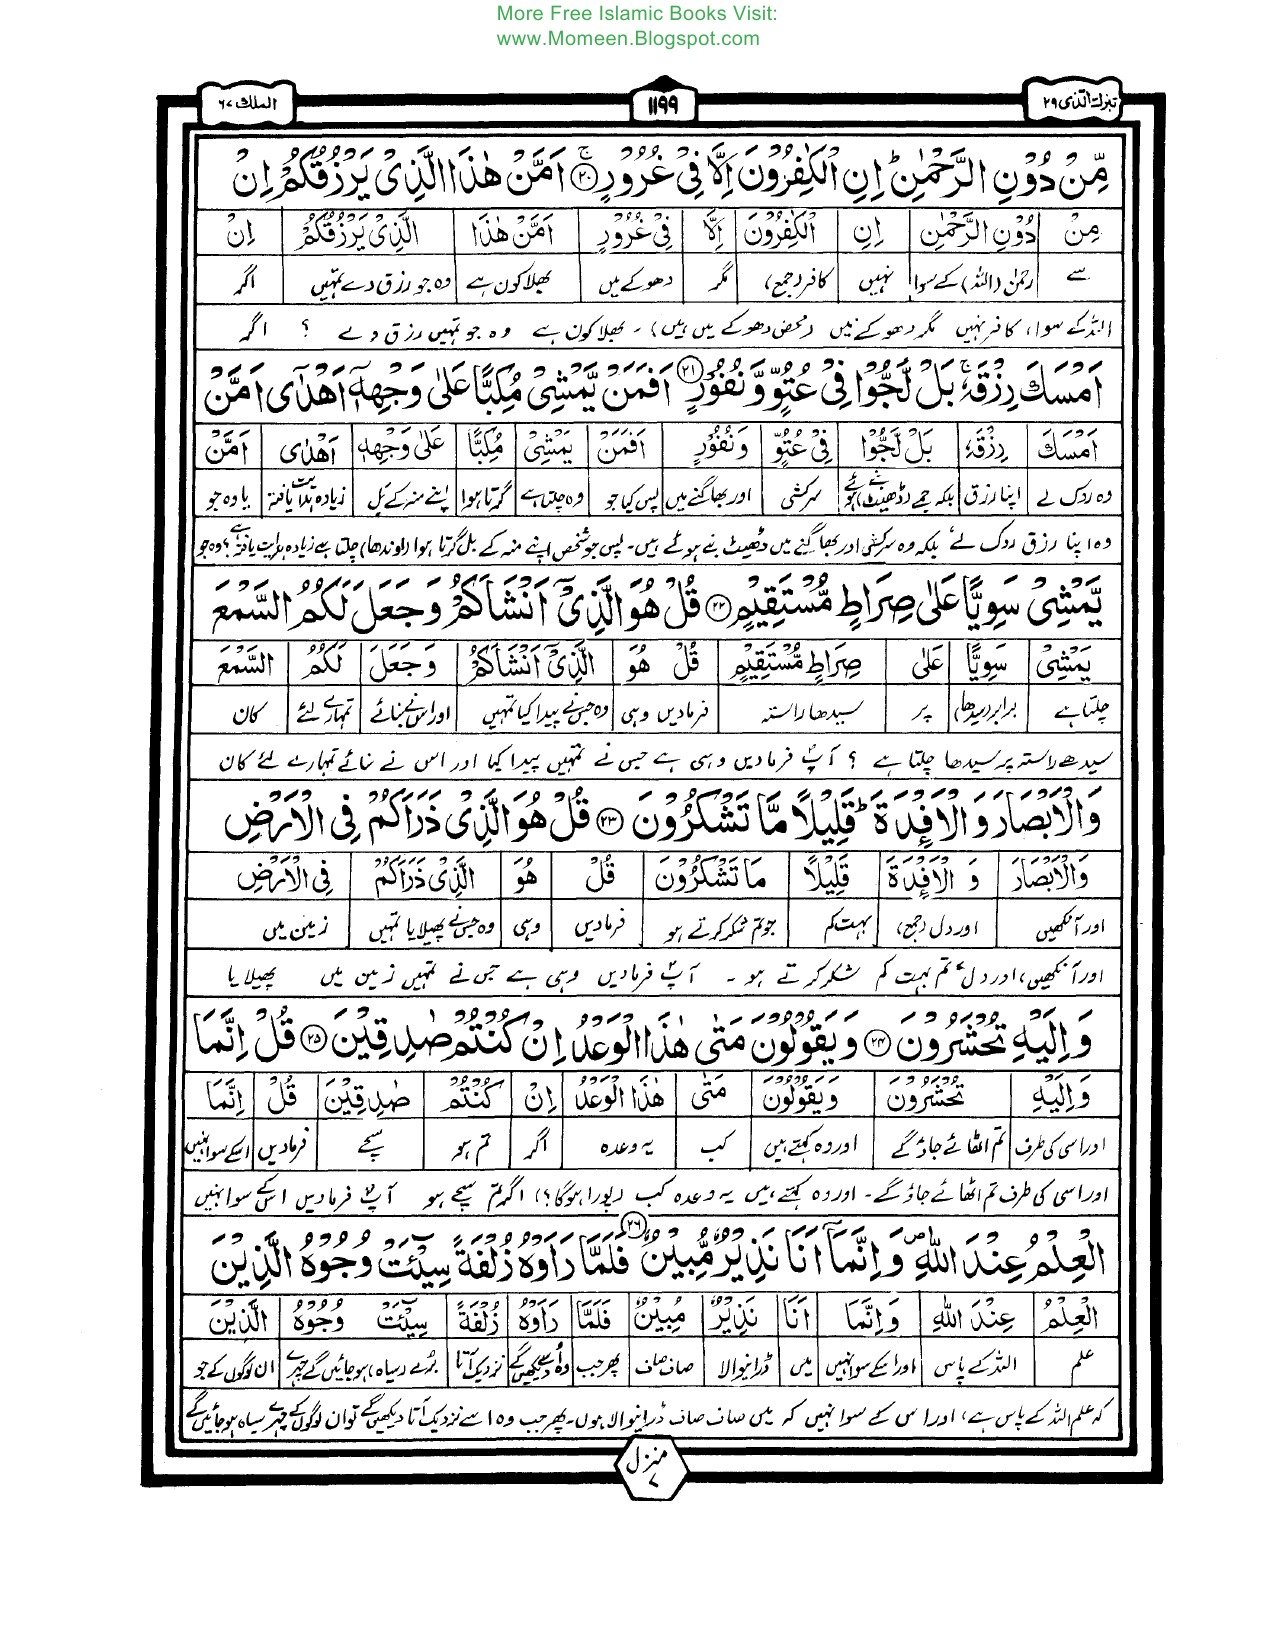 More Free Islamic Books Visit:
www.Momeen.Blogspot.com
تبٰرك الذی ۲۹
۱۱۹۹
الملك ۶۷
مِّنْ دُوْنِ الرَّحْمٰنِ ؕ اِنِ الْكٰفِرُوْنَ اِلَّا فِیْ غُرُوْرٍ ۚ ۲۰ اَمَّنْ هٰذَا الَّذِیْ یَرْزُقُكُمْ اِنْ
مِنْ دُوْنِ الرَّحْمٰنِ اِنِ الْكٰفِرُوْنَ اِلَّا فِیْ غُرُوْرٍ اَمَّنْ هٰذَا الَّذِیْ یَرْزُقُكُمْ اِنْ
سے رحمٰن (اللہ) کے سوا نہیں کافر (جمع) مگر دھوکے میں بھلا کون ہے وہ جو رزق دے تمہیں اگر
اللہ کے سوا، کافر نہیں مگر دھوکے میں (محض دھوکے میں ہیں) ۔ بھلا کون ہے وہ جو تمہیں رزق دے ؟ اگر
اَمْسَكَ رِزْقَهٗ ۚ بَلْ لَّجُّوْا فِیْ عُتُوٍّ وَّ نُفُوْرٍ ۲۱ اَفَمَنْ یَّمْشِیْ مُكِبًّا عَلٰی وَجْهِهٖۤ اَهْدٰۤی اَمَّنْ
اَمْسَكَ رِزْقَهٗ بَلْ لَجُّوْا فِیْ عُتُوٍّ وَنُفُوْرٍ اَفَمَنْ یَمْشِیْ مُكِبًّا عَلٰی وَجْهِهٖ اَهْدٰی اَمَّنْ
وہ روک لے اپنا رزق بلکہ جمے (ڈھیٹ بنے) ہوئے سرکشی اور بھاگنے میں پس کیا جو وہ چلتا ہے گرتا ہوا اپنے منہ کے بل زیادہ ہدایت یافتہ یا وہ جو
وہ اپنا رزق روک لے بلکہ وہ سرکشی اور بھاگنے میں ڈھیٹ بنے ہوئے ہیں۔ پس جو شخص اپنے منہ کے بل گرتا ہوا (اوندھا) چلتا ہے زیادہ ہدایت یافتہ ہے؟ وہ جو
یَّمْشِیْ سَوِیًّا عَلٰی صِرَاطٍ مُّسْتَقِیْمٍ ۲۲ قُلْ هُوَ الَّذِیْۤ اَنْشَاَكُمْ وَ جَعَلَ لَكُمُ السَّمْعَ
یَمْشِیْ سَوِیًّا عَلٰی صِرَاطٍ مُّسْتَقِیْمٍ قُلْ هُوَ الَّذِیْ اَنْشَاَكُمْ وَجَعَلَ لَكُمُ السَّمْعَ
چلتا ہے برابر (سیدھا) پر سیدھا راستہ فرما دیں وہی وہ جس نے پیدا کیا تمہیں اور اس نے بنائے تمہارے لئے کان
سیدھے راستہ پر سیدھا چلتا ہے ؟ آپؐ فرما دیں وہی ہے جس نے تمہیں پیدا کیا اور اس نے بنائے تمہارے لئے کان
وَ الْاَبْصَارَ وَ الْاَفْـِٕدَةَ ؕ قَلِیْلًا مَّا تَشْكُرُوْنَ ۲۳ قُلْ هُوَ الَّذِیْ ذَرَاَكُمْ فِی الْاَرْضِ
وَالْاَبْصَارَ وَ الْاَفْـِٕدَةَ قَلِیْلًا مَا تَشْكُرُوْنَ قُلْ هُوَ الَّذِیْ ذَرَاَكُمْ فِی الْاَرْضِ
اور آنکھیں اور دل (جمع) بہت کم جو تم شکر کرتے ہو فرما دیں وہی وہ جس نے پھیلایا تمہیں زمین میں
اور آنکھیں، اور دل، تم بہت کم شکر کرتے ہو ۔ آپؐ فرما دیں وہی ہے جس نے تمہیں زمین میں پھیلایا
وَ اِلَیْهِ تُحْشَرُوْنَ ۲۴ وَ یَقُوْلُوْنَ مَتٰی هٰذَا الْوَعْدُ اِنْ كُنْتُمْ صٰدِقِیْنَ ۲۵ قُلْ اِنَّمَا
وَاِلَیْهِ تُحْشَرُوْنَ وَیَقُوْلُوْنَ مَتٰی هٰذَا الْوَعْدُ اِنْ كُنْتُمْ صٰدِقِیْنَ قُلْ اِنَّمَا
اور اسی کی طرف تم اٹھائے جاؤگے اور وہ کہتے ہیں کب یہ وعدہ اگر تم ہو سچے فرما دیں اسکے سوا نہیں
اور اسی کی طرف تم اٹھائے جاؤگے۔ اور وہ کہتے ہیں یہ وعدہ کب (پورا ہوگا؟) اگر تم سچے ہو آپؐ فرما دیں اس کے سوا نہیں
الْعِلْمُ عِنْدَ اللّٰهِ ۪ وَ اِنَّمَاۤ اَنَا نَذِیْرٌ مُّبِیْنٌ ۲۶ فَلَمَّا رَاَوْهُ زُلْفَةً سِیْٓئَتْ وُجُوْهُ الَّذِیْنَ
الْعِلْمُ عِنْدَ اللّٰهِ وَاِنَّمَا اَنَا نَذِیْرٌ مُبِیْنٌ فَلَمَّا رَاَوْهُ زُلْفَةً سِیْٓئَتْ وُجُوْهُ الَّذِیْنَ
علم اللہ کے پاس اور اسکے سوا نہیں میں ڈرانیوالا صاف صاف پھر جب وہ اُسے دیکھیں گے نزدیک آتا بُرے (سیاہ) ہو جائیں گے چہرے ان لوگوں کے جو
کہ علم اللہ کے پاس ہے، اور اس کے سوا نہیں کہ میں صاف صاف ڈرانیوالا ہوں۔ پھر جب وہ اسے نزدیک آتا دیکھیں گے تو ان لوگوں کے چہرے سیاہ ہو جائیں گے
منزل
۷